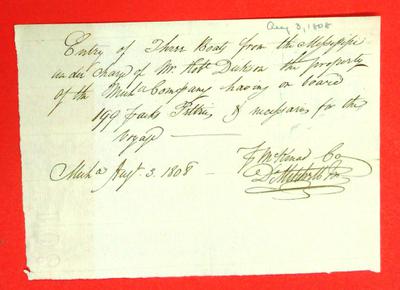 Aug 3, 1808
Entry of Three Boats from the Mississippi
under charge of Mr. Robt Dickson the property
of the Mich.a Company having on board
199 packs Peltries & necessaries for the
Voyage
Mich.a Augt 3. 1808
Co
D Mitchell